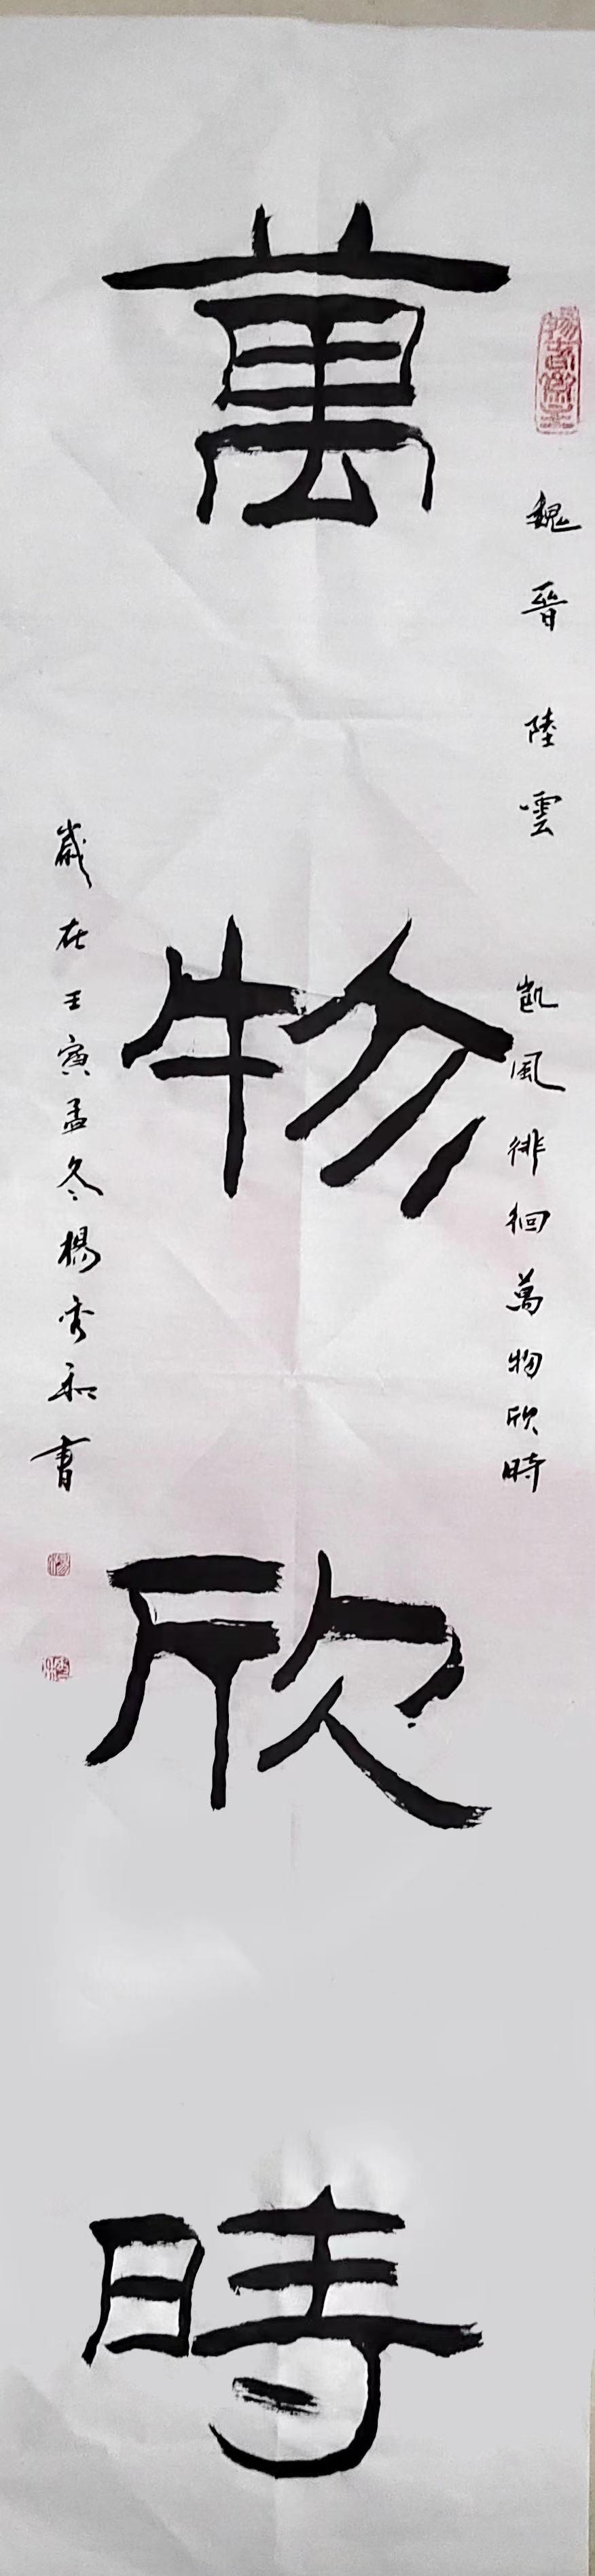 魏晉陸雲 凱風徘徊萬物欣時
萬物欣時
歲在壬寅孟冬楊秀和書